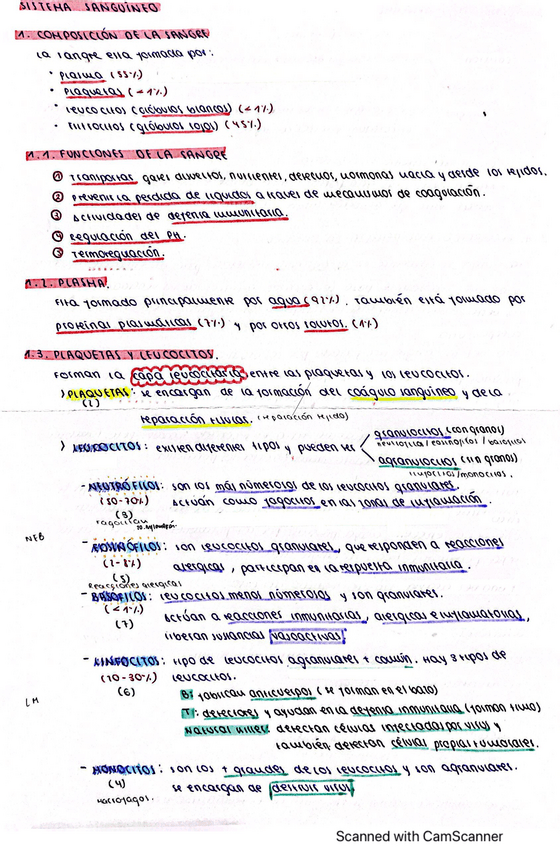 SISTEMA SANGUÍNEO
1. COMPOSICIÓN DE LA SANGRE
La sangre está formada por:
· Plasma (55%)
· Plaquetas (<1%)
· Leucocitos (glóbulos blancos) (<1%)
· Eritrocitos (glóbulos rojos) (45%)
1.1. FUNCIONES DE LA SANGRE
① Transportar gases disueltos, nutrientes, desechos, hormonas hacia y desde los tejidos.
② Prevenir la perdida de líquidos a traves de mecanismos de coagulación.
③ Actividades de defensa inmunitaria.
④ Regulación del PH.
⑤ Termoregulación.
1.2. PLASMA.
Está formado principalmente por agua (92%). También está formado por
proteínas plasmáticas (7%) y por otros solutos. (1%)
1.3. PLAQUETAS Y LEUCOCITOS.
Forman la capa leucocitaria entre las plaquetas y los leucocitos.
> PLAQUETAS: se encargan de la formación del coágulo sanguíneo y de la
(2)
reparación tisular. (reparación tejido)
> LEUCOCITOS: existen diferentes tipos y pueden ser
granulocitos (con granos)
neutrofilos / eosinofilos / basofilos
agranulocitos (sin granos)
linfocitos/monocitos.
- NEUTRÓFILOS: son los más numerosos de los leucocitos granulares.
(50-70%) Actúan como fagocitos en las zonas de inflamación.
(3)
fagocitan
NEB
- EOSINÓFILOS: son leucocitos granulares, que responden a reacciones
(1-3%) alérgicas, participan en la respuesta inmunitaria.
(5)
Reacciones alergicas
- BASÓFILOS: leucocitos menos numerosos y son granulares.
(<1%) Actúan a reacciones inmunitarias, alérgicas e inflamatorias,
(7) liberan sustancias vasoactivas
- LINFOCITOS: tipo de leucocitos agranulares + común. Hay 3 tipos de
(20-30%) leucocitos.
(6) B: fabrican anticuerpos (se forman en el bazo)
LM
T: detectores y ayudan en la defensa inmunitaria (forman timo)
Natural killer: detectan células infectadas por virus y
también detectan células propias tumorales.
- MONOCITOS: son los + grandes de los leucocitos y son agranulares.
(4) se encargan de destruir virus
macrofagos.
Scanned with CamScanner